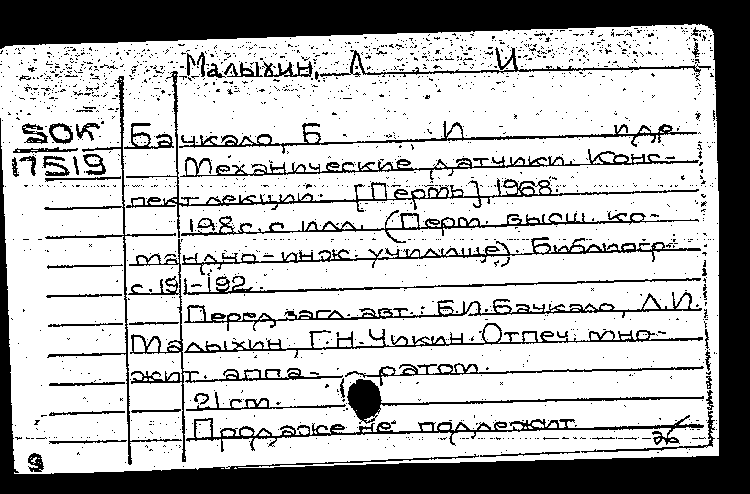 Малыхин, Л. И.
SOK Бачкало, Б. И. и др.
17519 Механические датчики. Конс-
пект лекций. [Пермь], 1968.
198 с. с илл. (Перм. высш. ко-
мандно-инж. училище). Библиогр.
с. 191-192.
Перед загл. авт.: Б.И. Бачкало, Л.И.
Малыхин, Г.Н. Чикин. Отпеч. мно-
жит. аппа-ратом.
21 см.
Продаже не подлежит
9